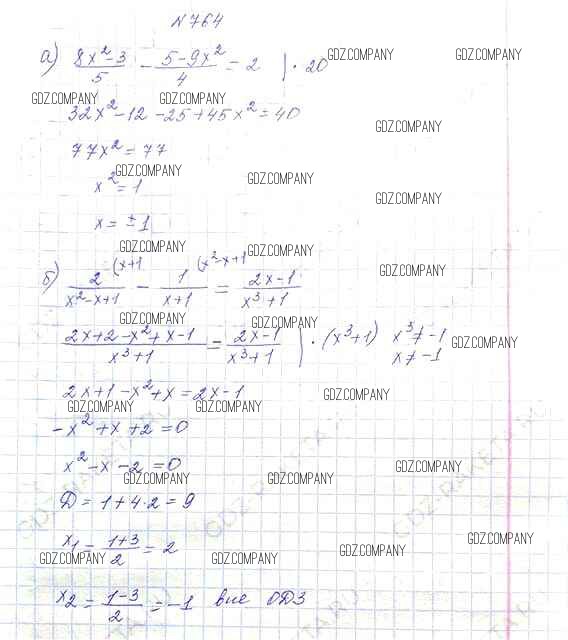 №764
а) (8x²-3)/5 - (5-9x²)/4 = 2 | · 20
GDZ.COMPANY GDZ.COMPANY
GDZ.COMPANY GDZ.COMPANY
32x²-12-25+45x²=40
GDZ.COMPANY
77x²=77
GDZ.COMPANY GDZ.COMPANY
x²=1
GDZ.COMPANY
x=±1
GDZ.COMPANY GDZ.COMPANY
б) 2/(x²-x+1) (x+1 - 1/(x+1) (x²-x+1 = (2x-1)/(x³+1)
GDZ.COMPANY
GDZ.COMPANY GDZ.COMPANY
(2x+2-x²+x-1)/(x³+1) = (2x-1)/(x³+1) | · (x³+1) x³≠-1
x≠-1
GDZ.COMPANY
2x+1-x²+x=2x-1
GDZ.COMPANY
GDZ.COMPANY GDZ.COMPANY
-x²+x+2=0
x²-x-2=0
GDZ.COMPANY
GDZ.COMPANY GDZ.COMPANY
Д=1+4·2=9
x₁=(1+3)/2=2
GDZ.COMPANY GDZ.COMPANY GDZ.COMPANY GDZ.COMPANY
x₂=(1-3)/2=-1 вне ОДЗ